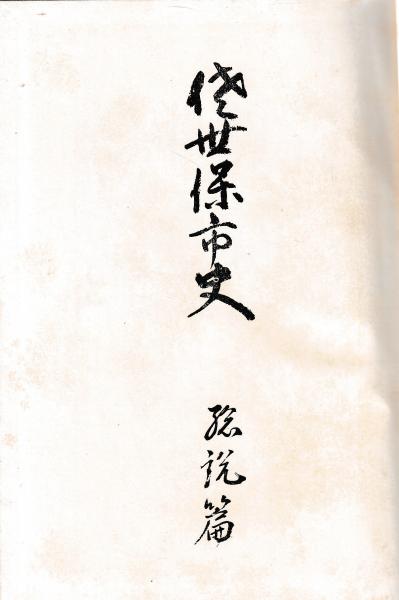 佐世保市史
総説篇